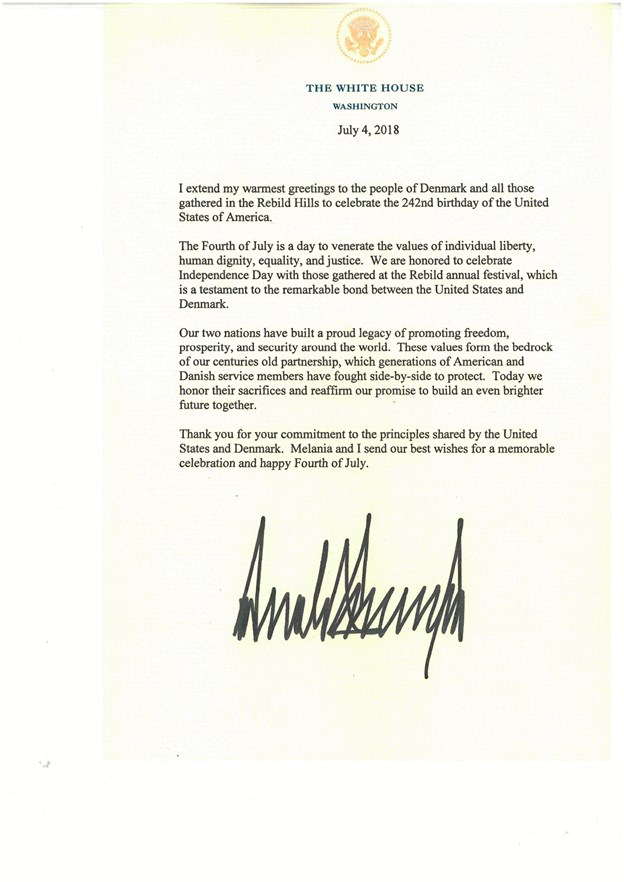 THE WHITE HOUSE
WASHINGTON
July 4, 2018
I extend my warmest greetings to the people of Denmark and all those
gathered in the Rebild Hills to celebrate the 242nd birthday of the United
States of America.
The Fourth of July is a day to venerate the values of individual liberty,
human dignity, equality, and justice.  We are honored to celebrate
Independence Day with those gathered at the Rebild annual festival, which
is a testament to the remarkable bond between the United States and
Denmark.
Our two nations have built a proud legacy of promoting freedom,
prosperity, and security around the world.  These values form the bedrock
of our centuries old partnership, which generations of American and
Danish service members have fought side-by-side to protect.  Today we
honor their sacrifices and reaffirm our promise to build an even brighter
future together.
Thank you for your commitment to the principles shared by the United
States and Denmark.  Melania and I send our best wishes for a memorable
celebration and happy Fourth of July.